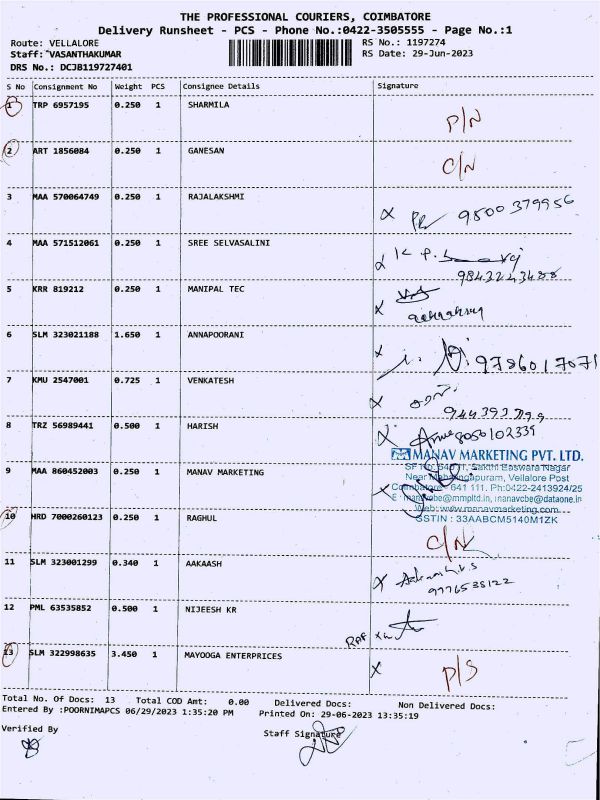 THE PROFESSIONAL COURIERS, COIMBATORE
Delivery Runsheet - PCS - Phone No.:0422-3505555 - Page No.:1
Route: VELLALORE RS No.: 1197274
Staff: VASANTHAKUMAR RS Date: 29-Jun-2023
DRS No.: DCJB119727401
S No Consignment No Weight PCS Consignee Details Signature
1 TRP 6957195 0.250 1 SHARMILA
P/N
2 ART 1856084 0.250 1 GANESAN
C/N
3 MAA 570064749 0.250 1 RAJALAKSHMI
9500379956
4 MAA 571512061 0.250 1 SREE SELVASALINI
9843243488
5 KRR 819212 0.250 1 MANIPAL TEC
6 SLM 323021188 1.650 1 ANNAPOORANI
9786017071
7 KMU 2547001 0.725 1 VENKATESH
8 TRZ 56989441 0.500 1 HARISH
8056102339
MANAV MARKETING PVT. LTD.
Sakthi Eswara Nagar
Vellalore Post
641 111. Ph:0422-2413924/25
9 MAA 860452003 0.250 1 MANAV MARKETING
Web: www.manavmarketing.com
GSTIN : 33AABCM5140M1ZK
10 HRD 7000260123 0.250 1 RAGHUL
C/N
11 SLM 323001299 0.340 1 AAKAASH
9776538122
12 PML 63535852 0.500 1 NIJEESH KR
13 SLM 322998635 3.450 1 MAYOOGA ENTERPRICES
P/S
Total No. Of Docs: 13 Total COD Amt: 0.00 Delivered Docs: Non Delivered Docs:
Entered By :POORNIMAPCS 06/29/2023 1:35:20 PM Printed On: 29-06-2023 13:35:19
Verified By Staff Signature